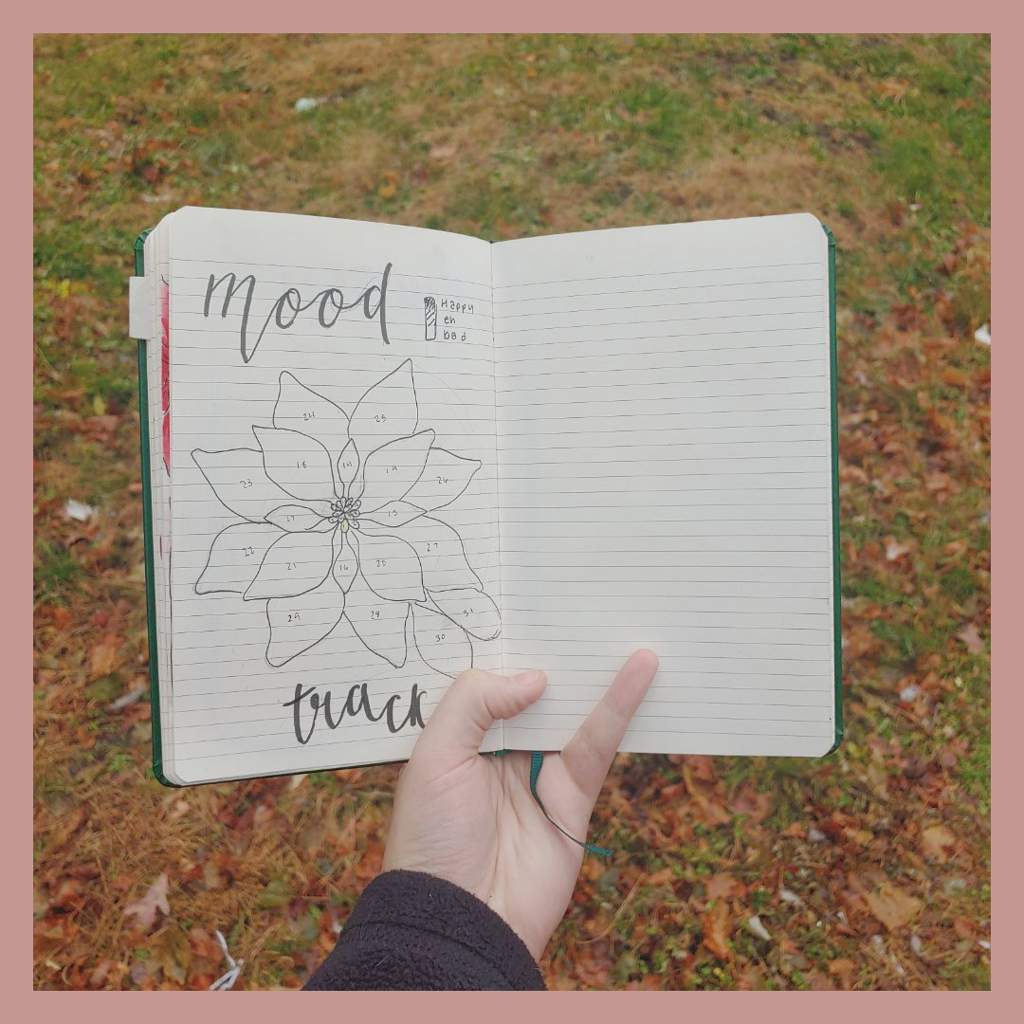 mood
Happy
eh
bad
24 25
18 14 19
23 26
17 15
22 27
21 16 20
29 28
31
30
track